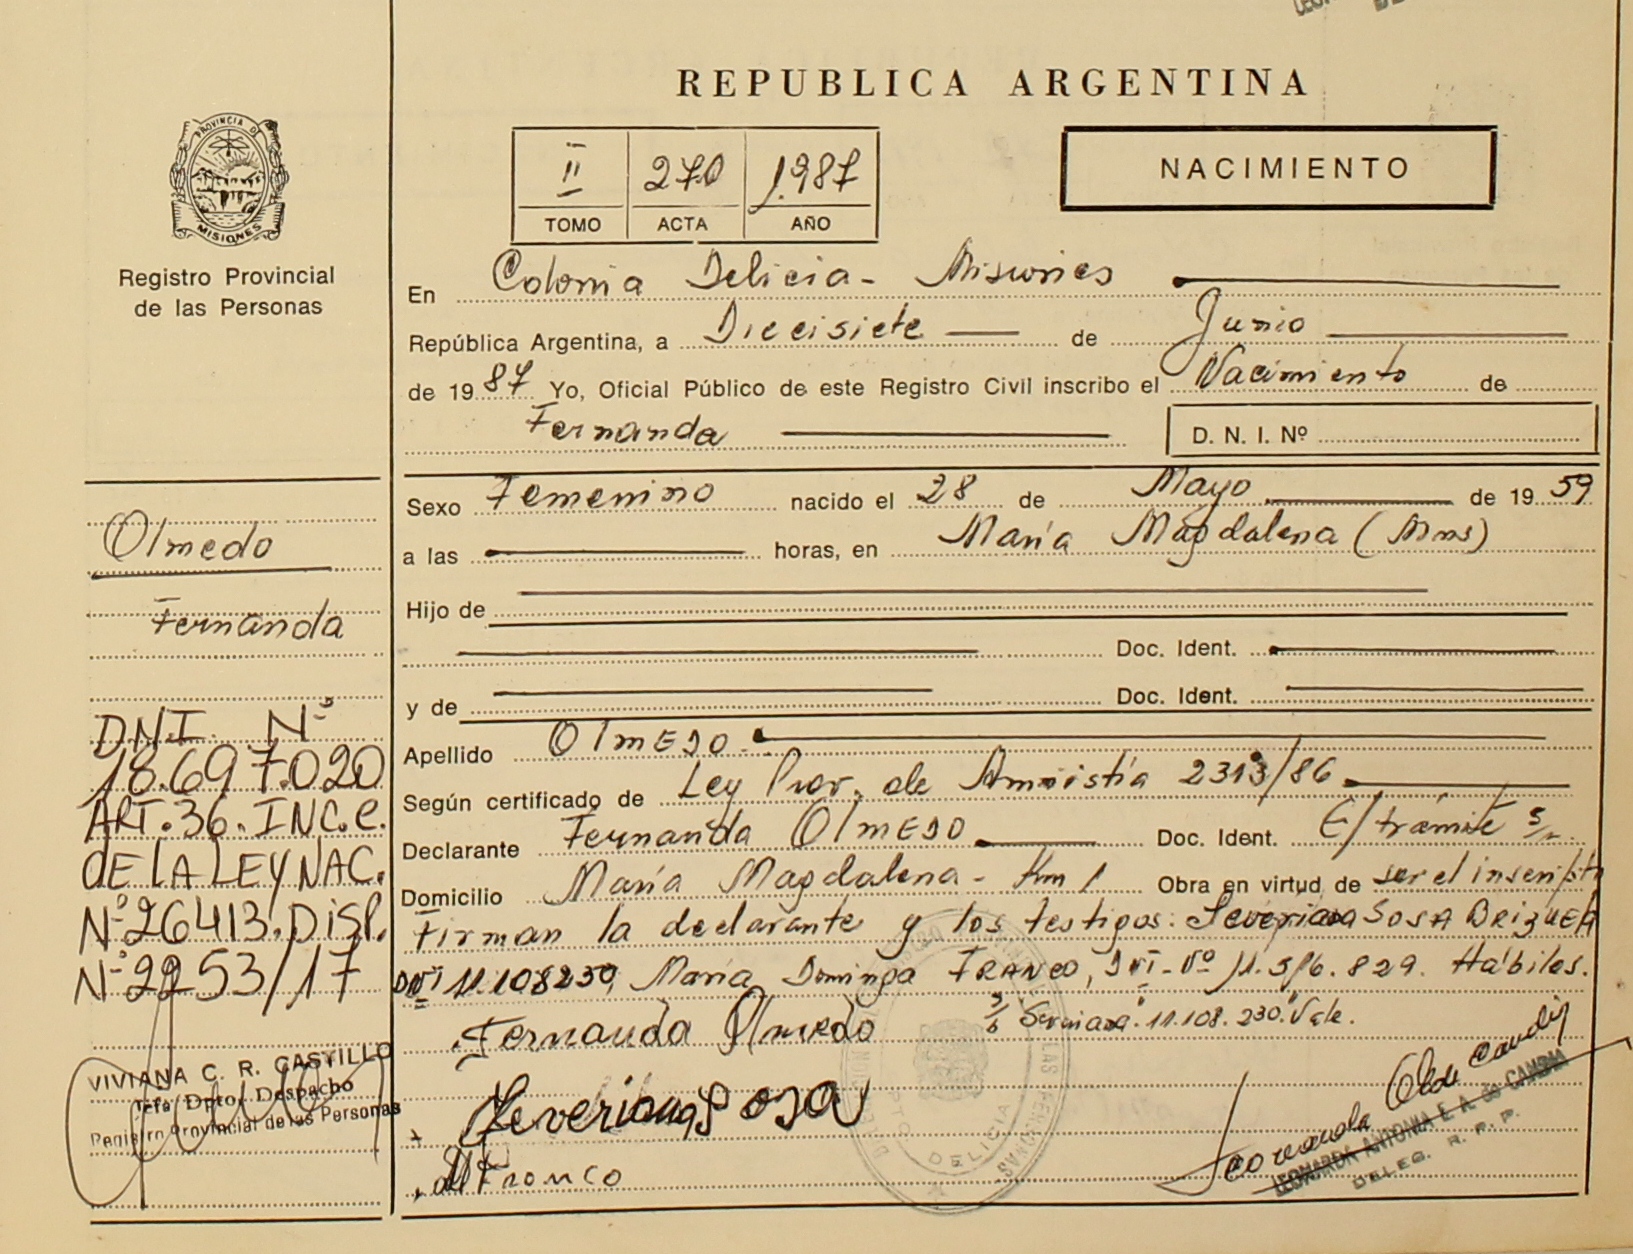 REPUBLICA ARGENTINA
PROVINCIA DE
MISIONES
Registro Provincial
de las Personas
II 270 1.987
TOMO ACTA AÑO
NACIMIENTO
En Colonia Delicia - Misiones
República Argentina, a Diecisiete de Junio
de 1987 Yo, Oficial Público de este Registro Civil inscribo el Nacimiento de
Fernanda
D. N. I. Nº
Sexo Femenino nacido el 28 de Mayo de 1959
a las horas, en María Magdalena (Mns)
Hijo de
Doc. Ident.
y de Doc. Ident.
Apellido OlmEDO.
Según certificado de Ley Prov. de Amnistía 2313/86
Declarante Fernanda OlmEDO Doc. Ident. E/trámite
Domicilio María Magdalena - Km 1 Obra en virtud de ser el inscripto
Firman la declarante y los testigos: Severiana SOSA BRIZUELA
DNI 11.108230, María Dominga FRANCO, DNI-Nº 11.516.829. Hábiles.
Severiana". 11.108.230." Vale.
Fernanda Olmedo
Severiana Sosa
Franco
Olmedo
Fernanda
DNI Nº
18.697.020
ART.36.INC.C.
DE LA LEY NAC.
Nº26413.DISP.
Nº2253/17
VIVIANA C. R. CASTILLO
Jefa Dptor. Despacho
Registro Provincial de las Personas
DELICIA
LAS PERSONAS
LEONARDA ANTONIA E. A. de CANDIA
DELEG. R. P. P.